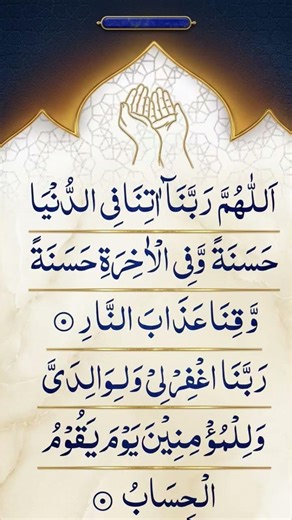 اَللّٰهُمَّ رَبَّنَآ اٰتِنَا فِی الدُّنْيَا
حَسَنَةً وَّفِی الْاٰخِرَةِ حَسَنَةً
وَّقِنَا عَذَابَ النَّارِ ۝
رَبَّنَا اغْفِرْ لِیْ وَلِوَالِدَیَّ
وَلِلْمُؤْمِنِيْنَ يَوْمَ يَقُوْمُ
الْحِسَابُ ۝